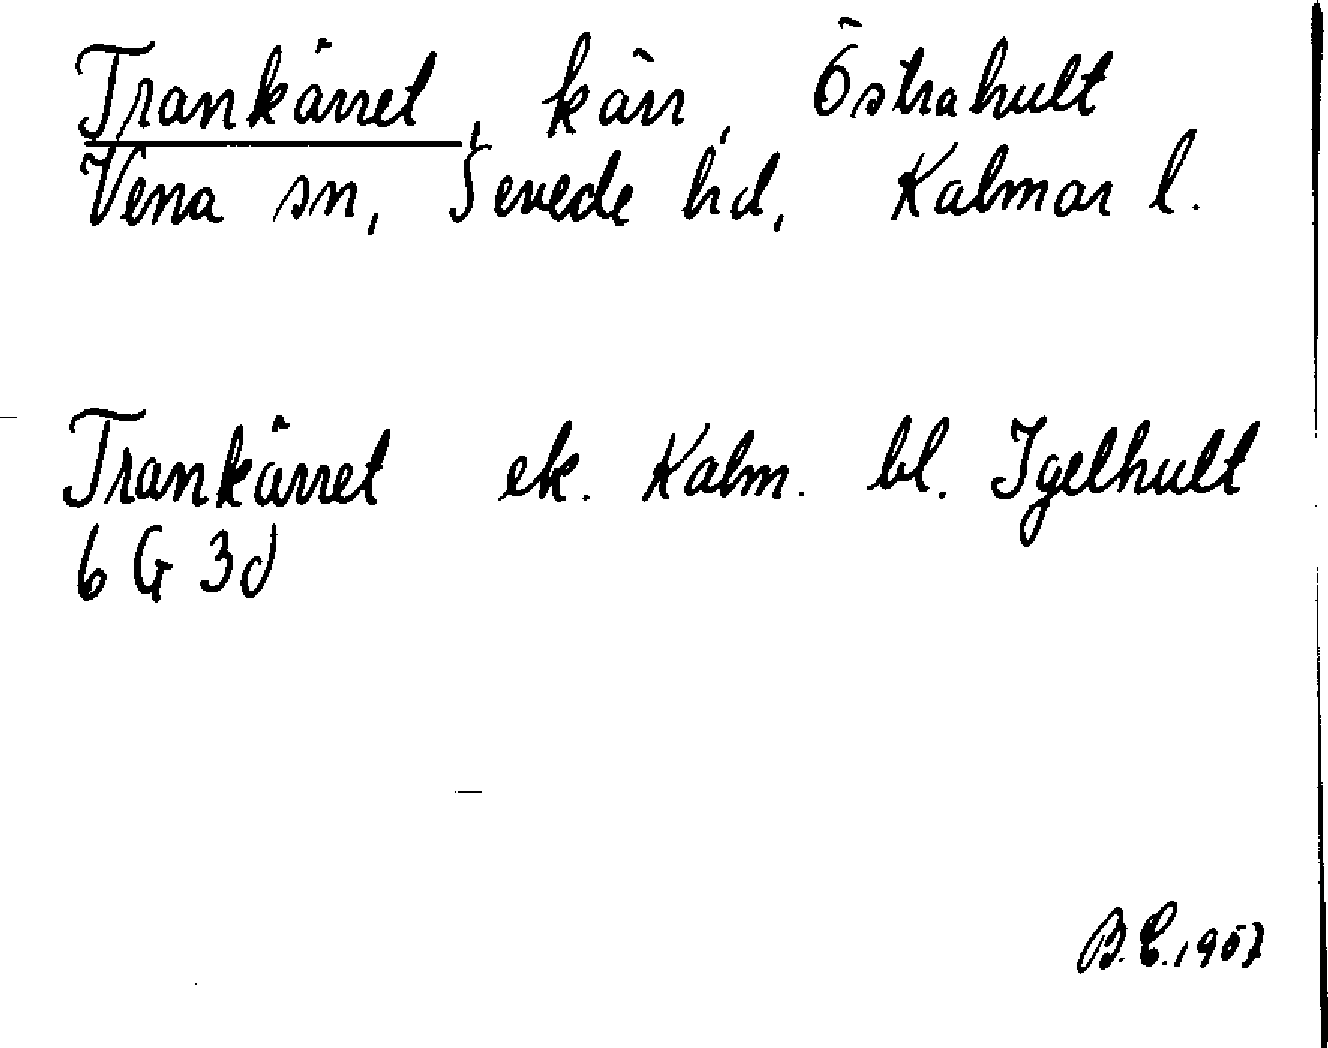 Trankärret, kärr, Östrahult
Vena sn, Sevede hd, Kalmar l.
Trankärret ek. Kalm. bl. Igelhult
6 G 3d
B.E. 1957